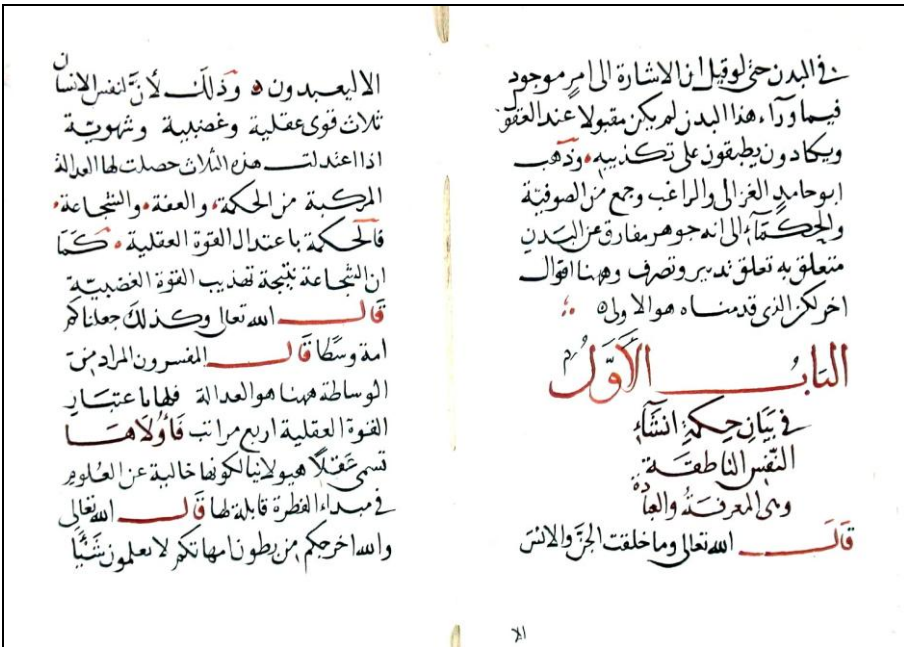 في البدن حتى لوقيل ان الاشارة الى امر موجود
فيما ورآء هذا البدن لم يكن مقبولا عند العقول
ويكادون يطبقون على تكذيبه وذهب
ابو حامد الغزالي والراغب وجمع من الصوفية
والحكمآء الى انه جوهر مفارق عن البدن
متعلق به تعلق تدبير وتصرف وههنا اقوال
اخر لكن الذي قدمناه هو الاولى
الباب الأول
في بيان حكمة انشآء
النفس الناطقة
وهي المعرفة والعبادة
قال الله تعالى وما خلقت الجن والانس
الا
الا ليعبدون وذلك لأن لنفس الانسان
ثلاث قوى عقلية وغضبية وشهوية
اذا اعتدلت هذه الثلاث حصلت لها العدالة
المركبة من الحكمة والعفة والشجاعة
فالحكمة باعتدال القوة العقلية كما
ان الشجاعة نتيجة تهذيب القوة الغضبية
قال الله تعالى وكذلك جعلناكم
امة وسطا قال المفسرون المراد من
الوساطة ههنا هو العدالة فلها باعتبار
القوة العقلية اربع مراتب فأولاها
تسمى عقلا هيولانيا لكونها خالية عن العلوم
في مبداء الفطرة قابلة لها قال الله تعالى
والله اخرجكم من بطون امهاتكم لا تعلمون شيئا